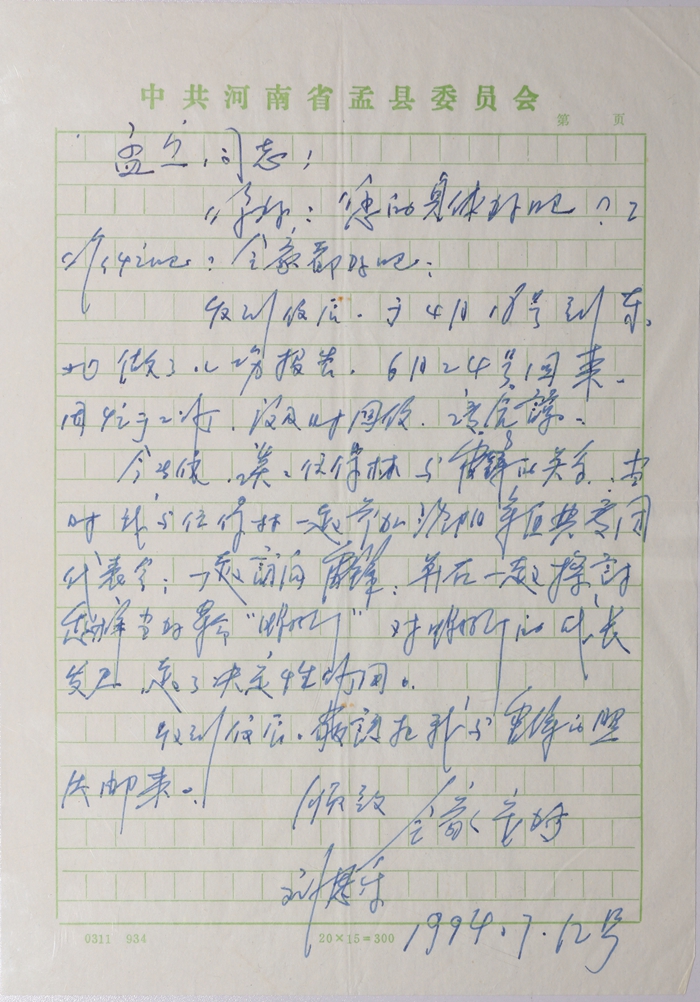 中共河南省孟县委员会
第 页
孟立同志：
你好：您的身体好吧？工
作忙吧：全家都好吧：
收到信后．于4月18号到东
北做了 场报告．6月24号回来．
因忙于工作．没及时回信．请原谅．
今去信，谈 与雷锋的关系．当
时我与 林一起参加沈阳军区共青团
代表会；一起 雷锋．并在一起探讨
怎样当好革命"螺丝钉" 对螺丝钉的成长
发展 起了决定性作用．
收到信后．敬请把我与雷锋的照
片邮来．
顺致
全家 好
1994.7.12号
0311 934
20×15=300